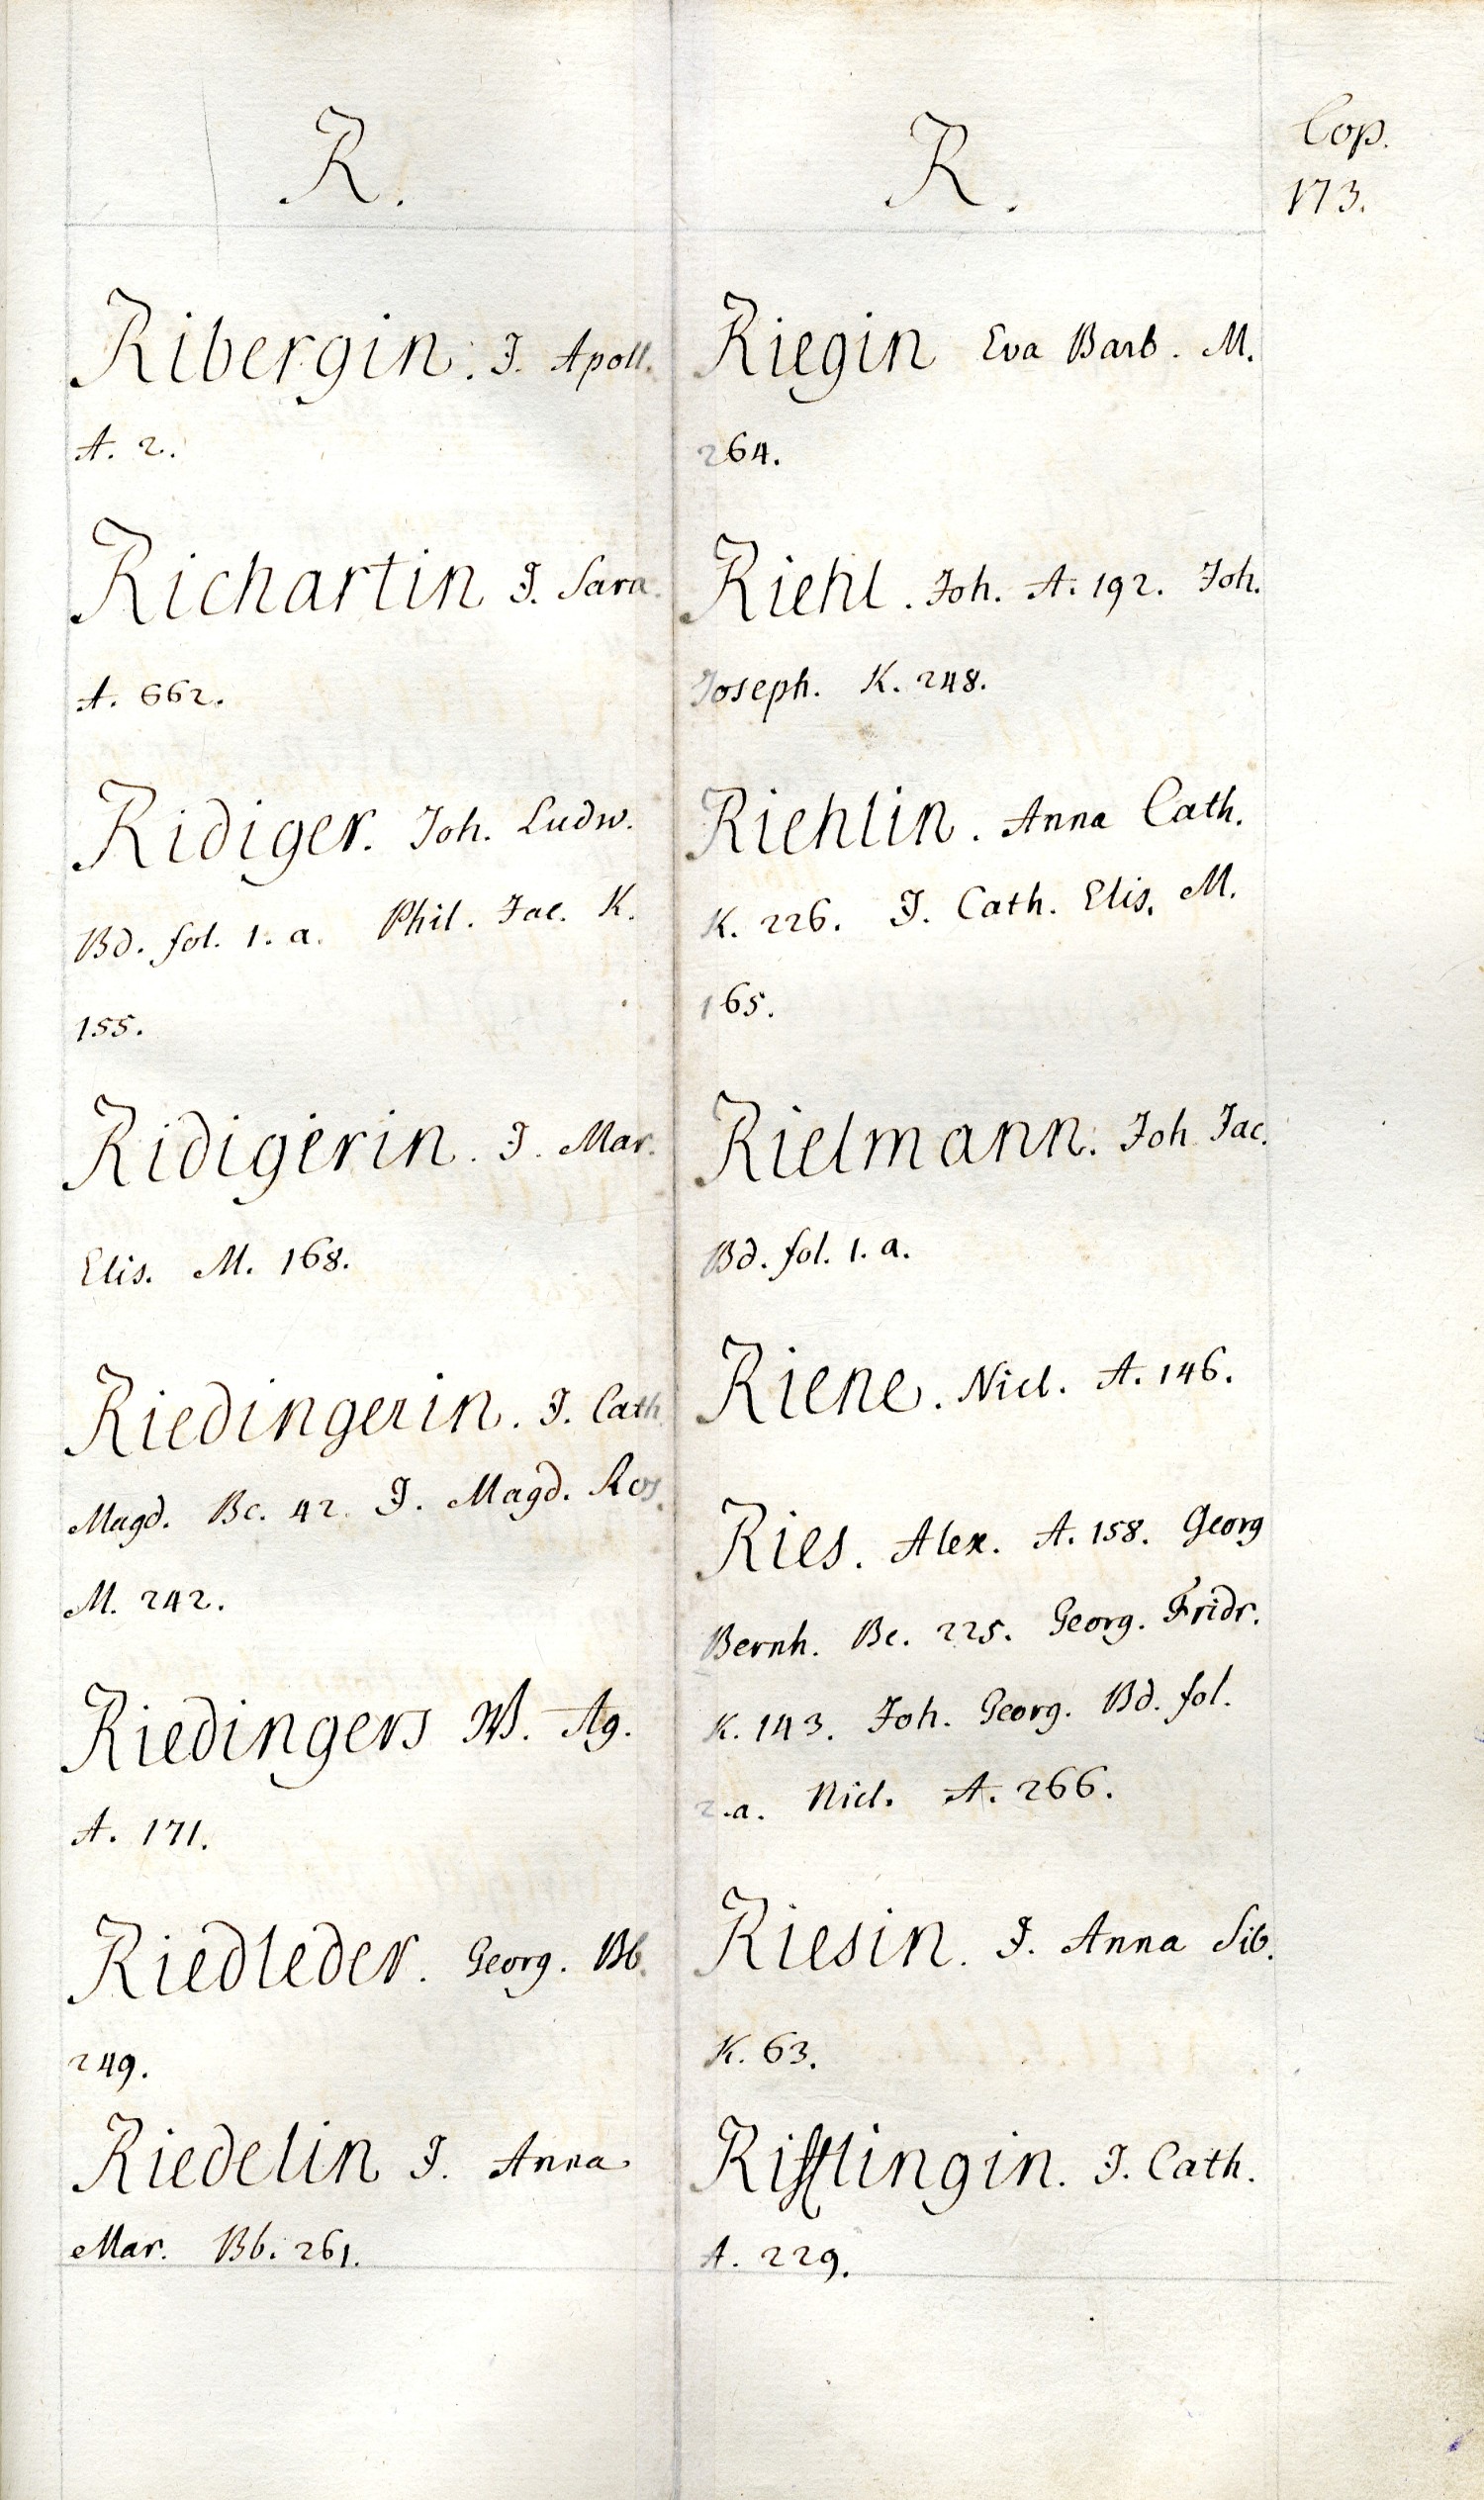 R.
Ribergin. J. Apoll.
A. 2.
Richartin J. Sara.
A. 662.
Ridiger. Joh. Ludw.
Bd. fol. 1. a. Phil. Jac. K.
155.
Ridigerin. J. Mar.
Elis. M. 168.
Riedingerin. J. Cath.
Magd. Bc. 42. J. Magd. Ros.
M. 242.
Riedingers W. Ag.
A. 171.
Riedleder. Georg. Bb.
249.
Riedelin J. Anna
Mar. Bb. 261.
R.
Riegin Eva Barb. M.
264.
Riehl. Joh. A. 192. Joh.
Joseph. K. 248.
Riehlin. Anna Cath.
K. 226. J. Cath. Elis. M.
165.
Rielmann. Joh Jac.
Bd. fol. 1. a.
Riene. Nicl. A. 146.
Ries. Alex. A. 158. Georg
Bernh. Bc. 225. Georg. Fridr.
K. 143. Joh. Georg. Bd. fol.
2.a. Nicl. A. 266.
Riesin. J. Anna Sib.
K. 63.
Riſſlingin. J. Cath.
A. 229.
Cop.
173.